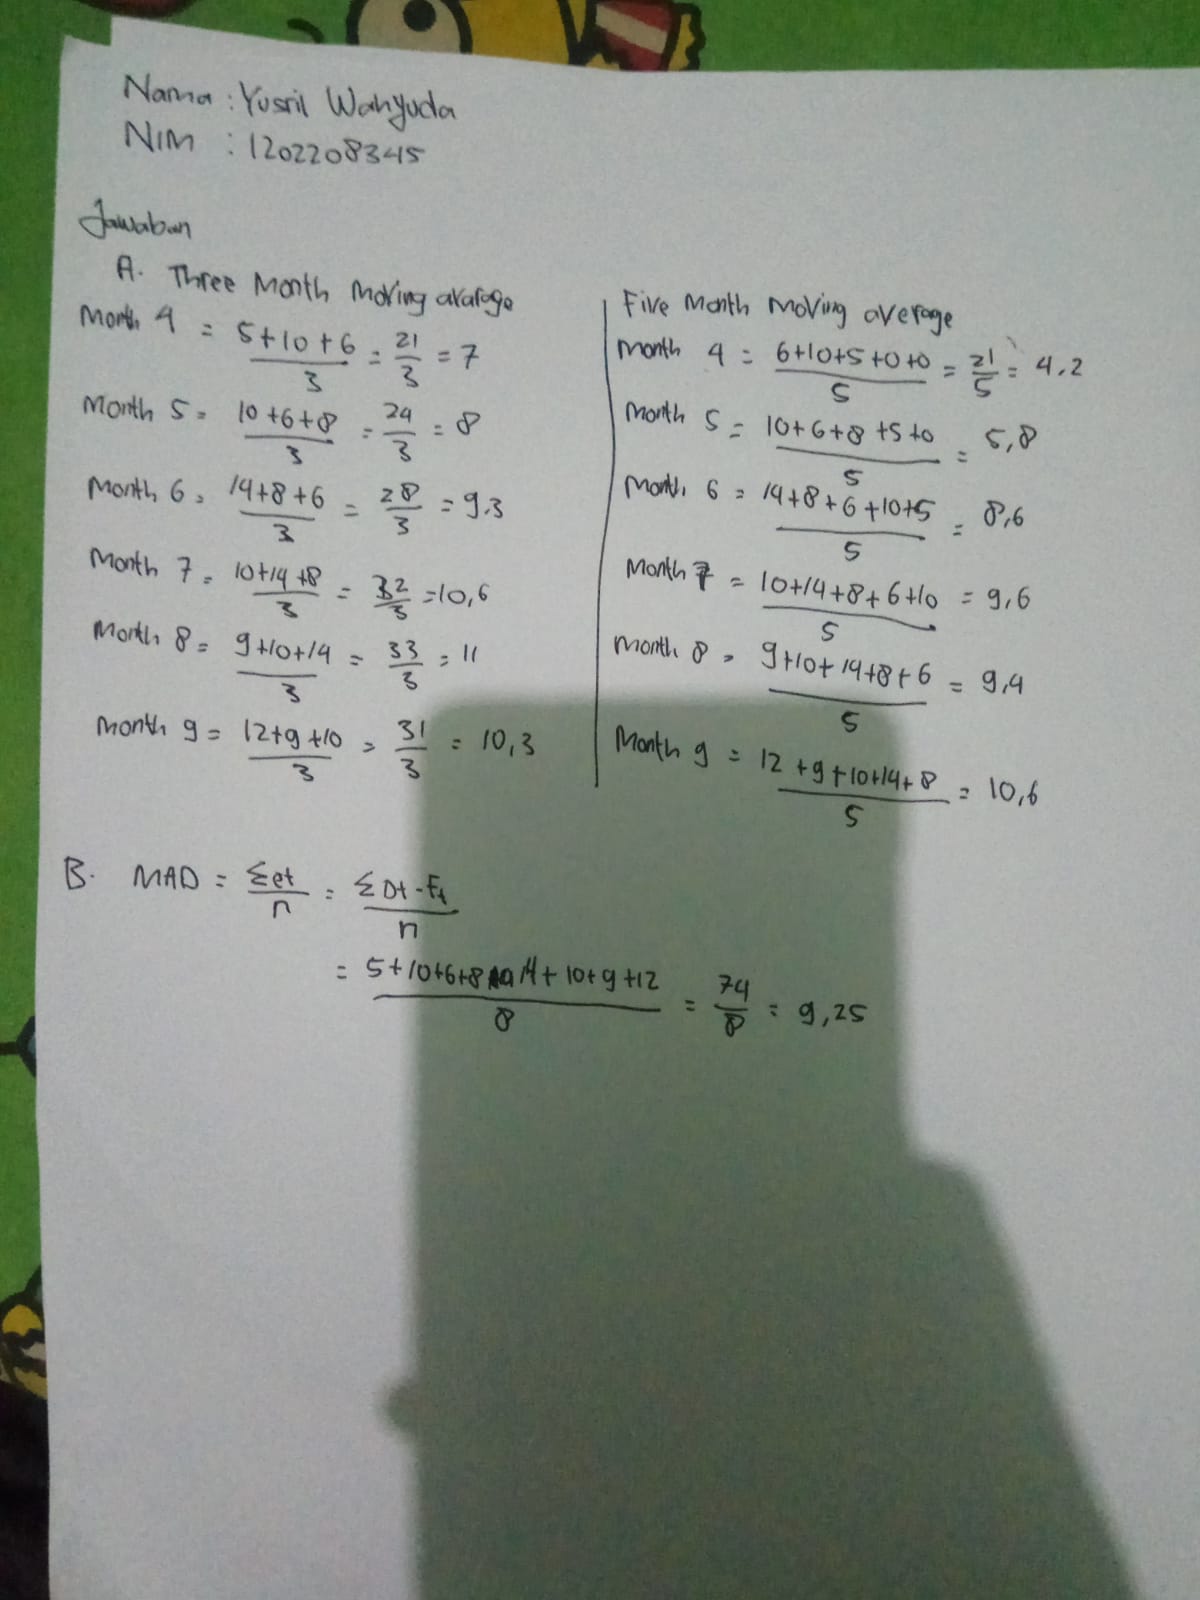 Nama : Yusril Wahyuda
NIM : 1202208345
Jawaban
A. Three Month Moving avarage
Month 4 = 5+10+6/3 = 21/3 = 7
Month 5 = 10+6+8/3 = 24/3 = 8
Month 6 = 14+8+6/3 = 28/3 = 9.3
Month 7 = 10+14+8/3 = 32/3 = 10,6
Month 8 = 9+10+14/3 = 33/3 = 11
Month 9 = 12+9+10/3 = 31/3 = 10,3
Five Month Moving average
Month 4 = 6+10+5+0+0/5 = 21/5 = 4.2
Month 5 = 10+6+8+5+0/5 = 5,8
Month 6 = 14+8+6+10+5/5 = 8,6
Month 7 = 10+14+8+6+10/5 = 9,6
Month 8 = 9+10+14+8+6/5 = 9,4
Month 9 = 12+9+10+14+8/5 = 10,6
B. MAD = Σet/n = ΣDt-Ft/n
= 5+10+6+8 14+10+9+12/8 = 74/8 = 9,25